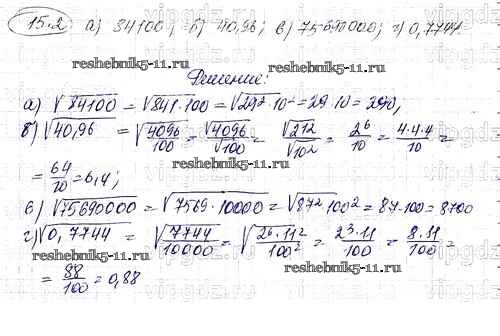 15.2 а) 84100; б) 40,96; в) 75690000; г) 0,7744
reshebnik5-11.ru reshebnik5-11.ru
Решение:
а) √84100 = √841·100 = √29²·10² = 29·10 = 290;
б) √40,96 = √4096/100 = √4096/√100 = √2¹²/√10² = 2⁶/10 = 4·4·4/10 =
reshebnik5-11.ru
= 64/10 = 6,4;
в) √75690000 = √7569·10000 = √87²·100² = 87·100 = 8700
г) √0,7744 = √7744/10000 = √2⁶·11²/100² = 2³·11/100 = 8·11/100 =
reshebnik5-11.ru
= 88/100 = 0,88